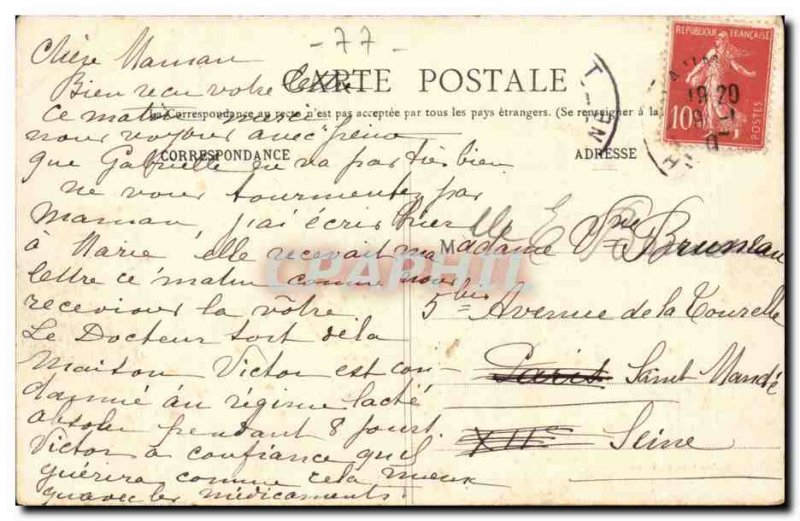 - 77 -
Chère Maman
Bien reçu votre lettre
CARTE POSTALE
ce matin
Correspondance au recto n'est pas acceptée par tous les pays étrangers. (Se renseigner à la
nous voyons avec peine
que Gabrielle ne va pas très bien
CORRESPONDANCE
ADRESSE
ne vous tourmentez pas
Maman, j'ai écris hier
à Marie, elle recevait ma
lettre ce matin comme nous
recevions la vôtre
Le Docteur sort de la
maison Victor est con-
damné au régime lacté
absolu pendant 8 jours.
Victor a confiance qu'il
guérira comme cela mieux
qu'avec les médicaments.
Madame Vne Bruneau
5 bis Avenue de la Tourelle
Paris Saint Mandé
XIIe Seine
REPUBLIQUE FRANÇAISE
10
POSTES
CPAPHIL